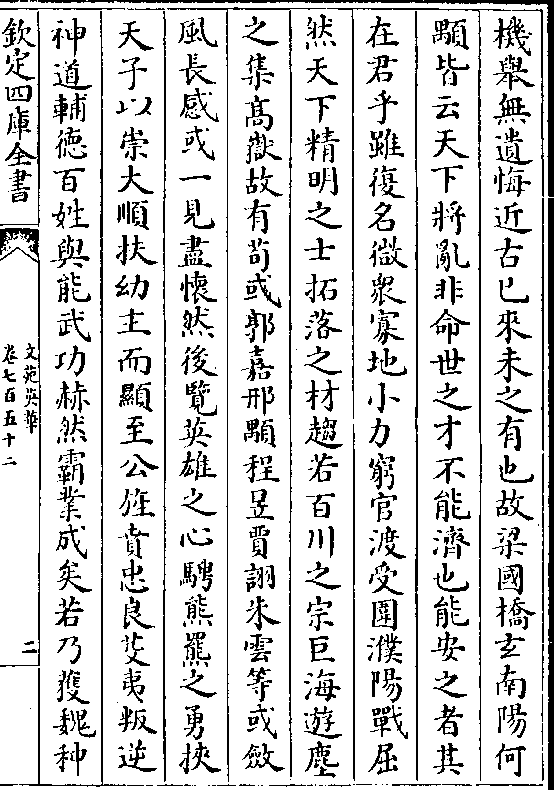 機舉無遺悔近古已來未之有也故梁國橋𤣥南陽何
顒皆云天下將亂非命世之才不能濟也能安之者其
在君乎雖復名微衆寡地小力窮官渡受圍濮陽戰屈
然天下精明之士拓落之材趨若百川之宗巨海遊塵
之集髙嶽故有荀彧郭嘉邢顒程昱賈詡朱雲等或斂
風長感或一見盡懐然後覽英雄之心騁熊羆之勇挾
天子以崇大順扶幼主而顯至公旌賁忠良芟夷叛逆
神道輔徳百姓與能武功赫然霸業成矣若乃獲魏种
欽定四庫全書
文苑英華
卷七百五十二
二